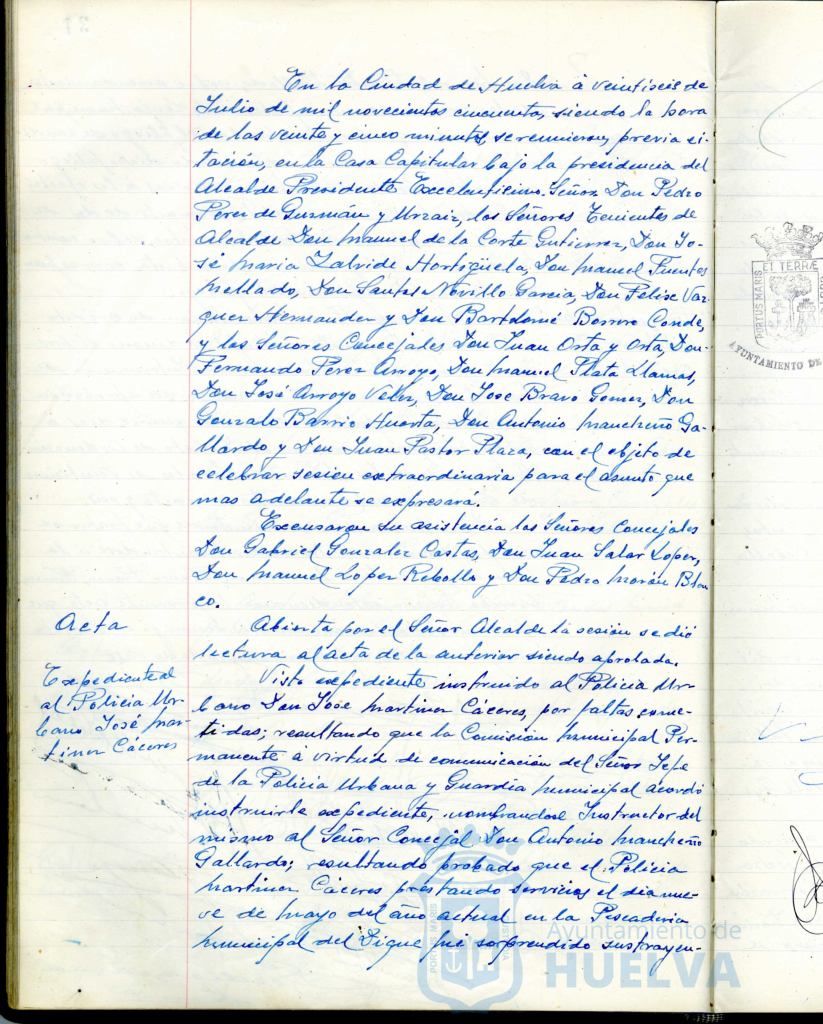 En la Ciudad de Huelva á veintiseis de
Julio de mil novecientos cincuenta, siendo la hora
de las veinte y cinco minutos, se reunieron, previa ci-
tación, en la Casa Capitular bajo la presidencia del
Alcalde Presidente Excelentísimo Señor Don Pedro
Perez de Guzmán y Urzaiz, los Señores Tenientes de
Alcalde Don Manuel de la Corte Gutierrez, Don Jo-
sé Maria Zalvide Hortigüela, Don Manuel Fuentes
Mellado, Don Santos Novillo Garcia, Don Felix Vaz-
quez Hernandez y Don Bartolomé Borrero Conde,
y los Señores Concejales Don Juan Orta y Orta, Don
Fernando Perez Arroyo, Don Manuel Plata Llamas,
Don José Arroyo Velez, Don Jose Bravo Gomez, Don
Gonzalo Barrio Huerta, Don Antonio Mancheño Ga-
llardo y Don Juan Pastor Plaza, con el objeto de
celebrar sesion extraordinaria para el asunto que
mas adelante se expresará.
Excusaron su asistencia los Señores Concejales
Don Gabriel Gonzalez Costas, Don Juan Salar Lopez,
Don Manuel Lopez Rebollo y Don Pedro Morán Blan-
co.
Acta
Abierta por el Señor Alcalde la sesión se dió
lectura al acta de la anterior siendo aprobada.
Expediente al
al Policia Ur-
bano José Mar-
tinez Cáceres
Visto expediente instruido al Policia Ur-
bano Don Jose Martinez Cáceres, por faltas come-
tidas; resultando que la Comisión Municipal Per-
manente á virtud de comunicación del Señor Jefe
de la Policia Urbana y Guardia Municipal acordó
instruirle expediente, nombrandose Instructor del
mismo al Señor Concejal Don Antonio Mancheño
Gallardo; resultando probado que el Policia
Martinez Cáceres prestando servicios el dia nue-
ve de Mayo del año actual en la Pescaderia
Municipal del Dique fué sorprendido sustrayen-
PORTUS MARIS
ET TERRÆ
AYUNTAMIENTO DE
Ayuntamiento de
HUELVA